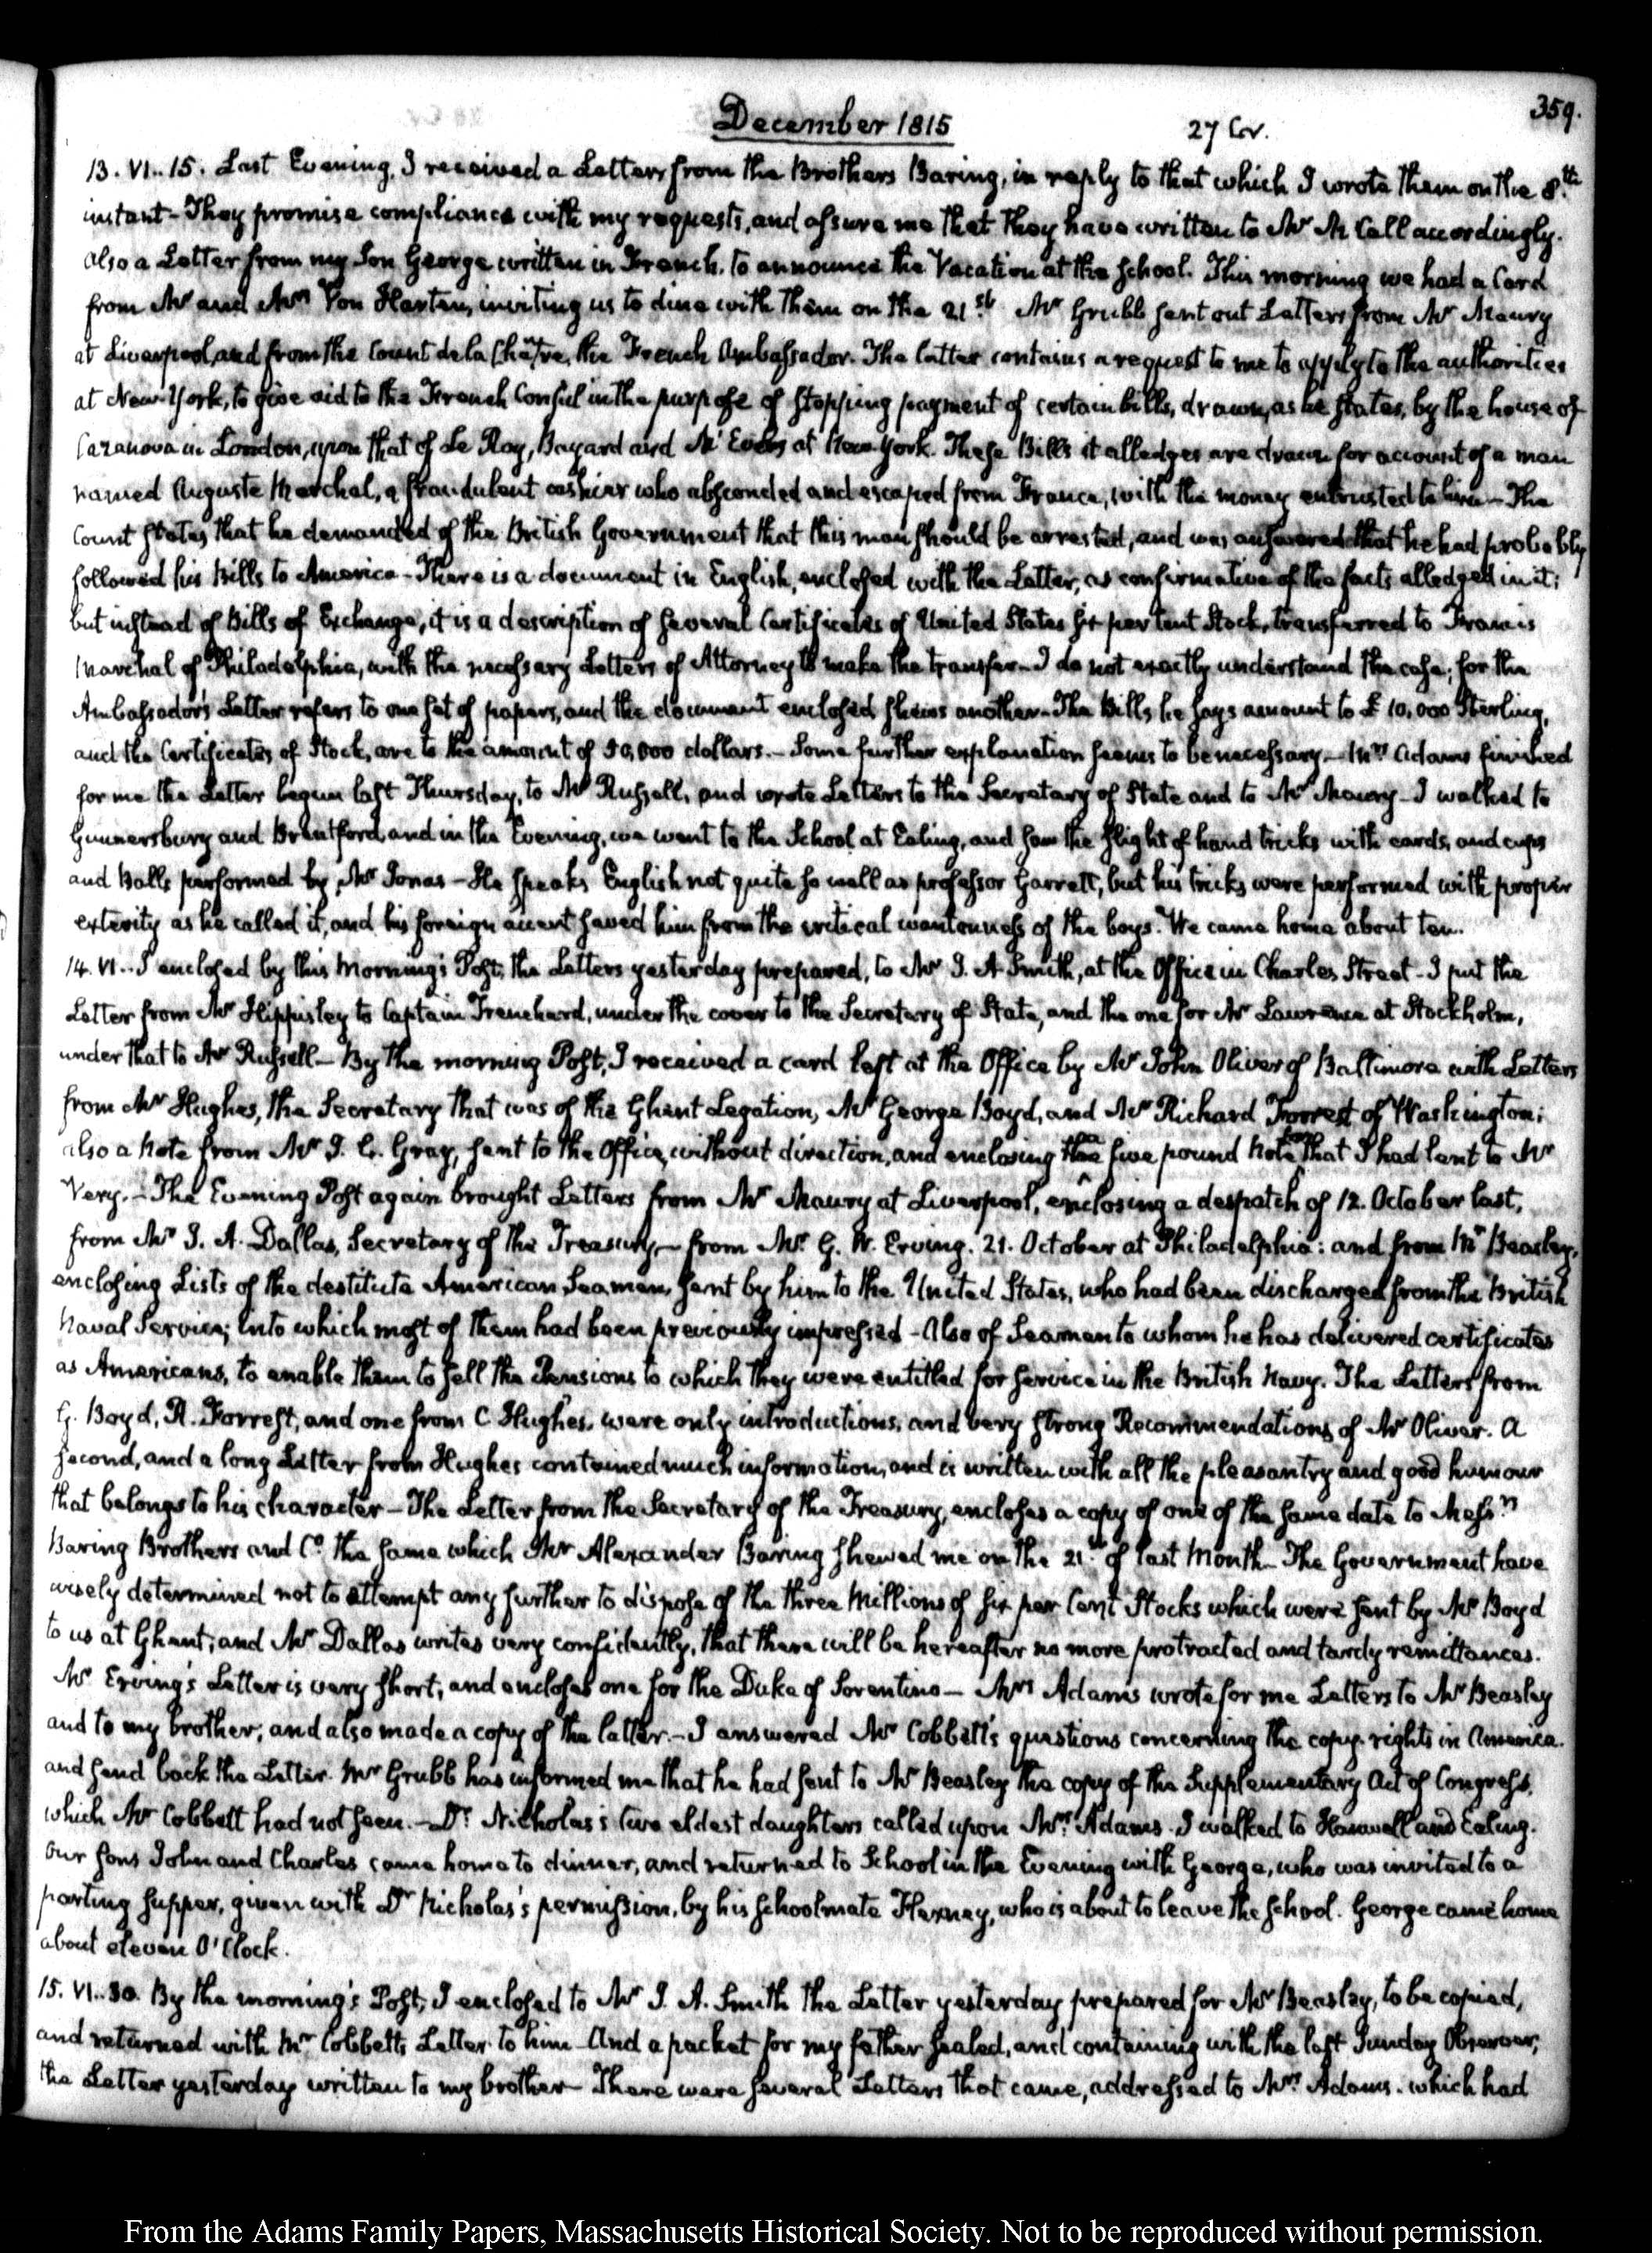 December 1815
27 Cr.
359.
13. VI..15. Last Evening, I received a Letter from the Brothers Baring, in reply to that which I wrote them on the 8th
instant- They promise compliance with my requests, and assure me that they have written to Mr McCall accordingly.
also a Letter from my Son George written in French, to announce the Vacation at the School. This morning we had a Card
from Mr and Mrs Von Harten, inviting us to dine with them on the 21st Mr Grubb sent out Letters from Mr Maury
at Liverpool, and from the Count de la Châtre, the French Ambassador. The latter contains a request to me to apply to the authorities
at New-York, to give aid to the French Consul in the purpose of stopping payment of certain bills, drawn, as he states, by the house of
Cazanova in London, upon that of Le Roy, Bayard and McEvers at New-York. These Bills it alledges are drawn for account of a man
named Auguste Marchal, a fraudulent cashier who absconded and escaped from France, with the money entrusted to him- The
Count states that he demanded of the British Government that this man should be arrested, and was answered that he had probably
followed his Bills to America- There is a document in English, enclosed with the Letter, as confirmative of the facts alledged in it;
but instead of Bills of Exchange, it is a description of several Certificates of United States Six per Cent Stock, transferred to Francis
Marchal of Philadelphia, with the necessary Letters of Attorney to make the transfer- I do not exactly understand the case; for the
Ambassador's Letter refers to one set of papers, and the document enclosed shews another- The Bills, he says amount to £ 10,000 Sterling,
and the Certificates of Stock, are to the amount of 50,000 dollars.- Some further explanation seems to be necessary- Mrs Adams finished
for me the Letter begun last Thursday, to Mr Russell, and wrote Letters to the Secretary of State and to Mr Maury- I walked to
Gunnersbury and Brentford, and in the Evening, we went to the School at Ealing, and saw the slight of hand tricks with cards, and cups
and Balls performed by Mr Jonas- He speaks English not quite so well as professor Garrett, but his tricks were performed with proper
exterity as he called it, and his foreign accent saved him from the critical wantonness of the boys. We came home about ten.
14. VI.. I enclosed by this Morning's Post, the Letters yesterday prepared, to Mr J. A Smith, at the Office in Charles Street- I put the
Letter from Mr Hippisley to Captain Trenchard, under the cover to the Secretary of State, and the one for Mr Lawrence at Stockholm,
under that to Mr Russell- By the morning Post, I received a card left at the Office by Mr John Oliver of Baltimore with Letters
from Mr Hughes, the Secretary that was of the Ghent Legation, Mr George Boyd, and Mr Richard Forrest of Washington;
also a Note from Mr J. C. Gray, sent to the Office, without direction, and enclosing the five pound Note that I had lent to Mr
Very.- The Evening Post again brought Letters from Mr Maury at Liverpool, enclosing a despatch of 12. October last,
from Mr J. A. Dallas, Secretary of the Treasury,- from Mr G. W. Erving. 21. October at Philadelphia: and from Mr Beasley,
enclosing Lists of the destitute American Seamen, sent by him to the United States, who had been discharged from the British
Naval Service; into which most of them had been previously impressed- Also of Seamen to whom he has delivered certificates
as Americans, to enable them to sell the Pensions to which they were entitled for service in the British Navy. The Letters from
G. Boyd, R. Forrest, and one from C Hughes, were only introductions, and very strong Recommendations of Mr Oliver. A
second, and a long Letter from Hughes contained much information, and is written with all the pleasantry and good humour
that belongs to his character- The Letter from the Secretary of the Treasury, encloses a copy of one of the same date to Messrs
Baring Brothers and Co. the same which Mr Alexander Baring shewed me on the 21st of last Month- The Government have
wisely determined not to attempt any further to dispose of the three Millions of six per Cent Stocks which were sent by Mr Boyd
to us at Ghent; and Mr Dallas writes very confidently, that there will be hereafter no more protracted and tardy remittances.
Mr Erving's Letter is very short, and encloses one for the Duke of Sorentino- Mrs Adams wrote for me Letters to Mr Beasley
and to my brother; and also made a copy of the latter.- I answered Mr Cobbett's questions concerning the copy-rights in America.
and send back the Letter. Mr Grubb has informed me that he had sent to Mr Beasley the copy of the Supplementary Act of Congress,
which Mr Cobbett had not seen.- Dr Nicholas's two eldest daughters called upon Mrs Adams. I walked to Hanwell and Ealing.
Our Sons John and Charles came home to dinner, and returned to School in the Evening with George, who was invited to a
parting supper, given with Dr Nicholas's permission, by his schoolmate Harney, who is about to leave the School. George came home
about eleven O'Clock.
15. VI..30. By the morning's Post, I enclosed to Mr J. A. Smith the Letter yesterday prepared for Mr Beasley, to be copied,
and returned with Mr Cobbetts Letter to him- And a packet for my father sealed, and containing with the last Sunday Observer,
the Letter yesterday written to my brother- There were several Letters that came, addressed to Mrs Adams. which had
From the Adams Family Papers, Massachusetts Historical Society. Not to be reproduced without permission.